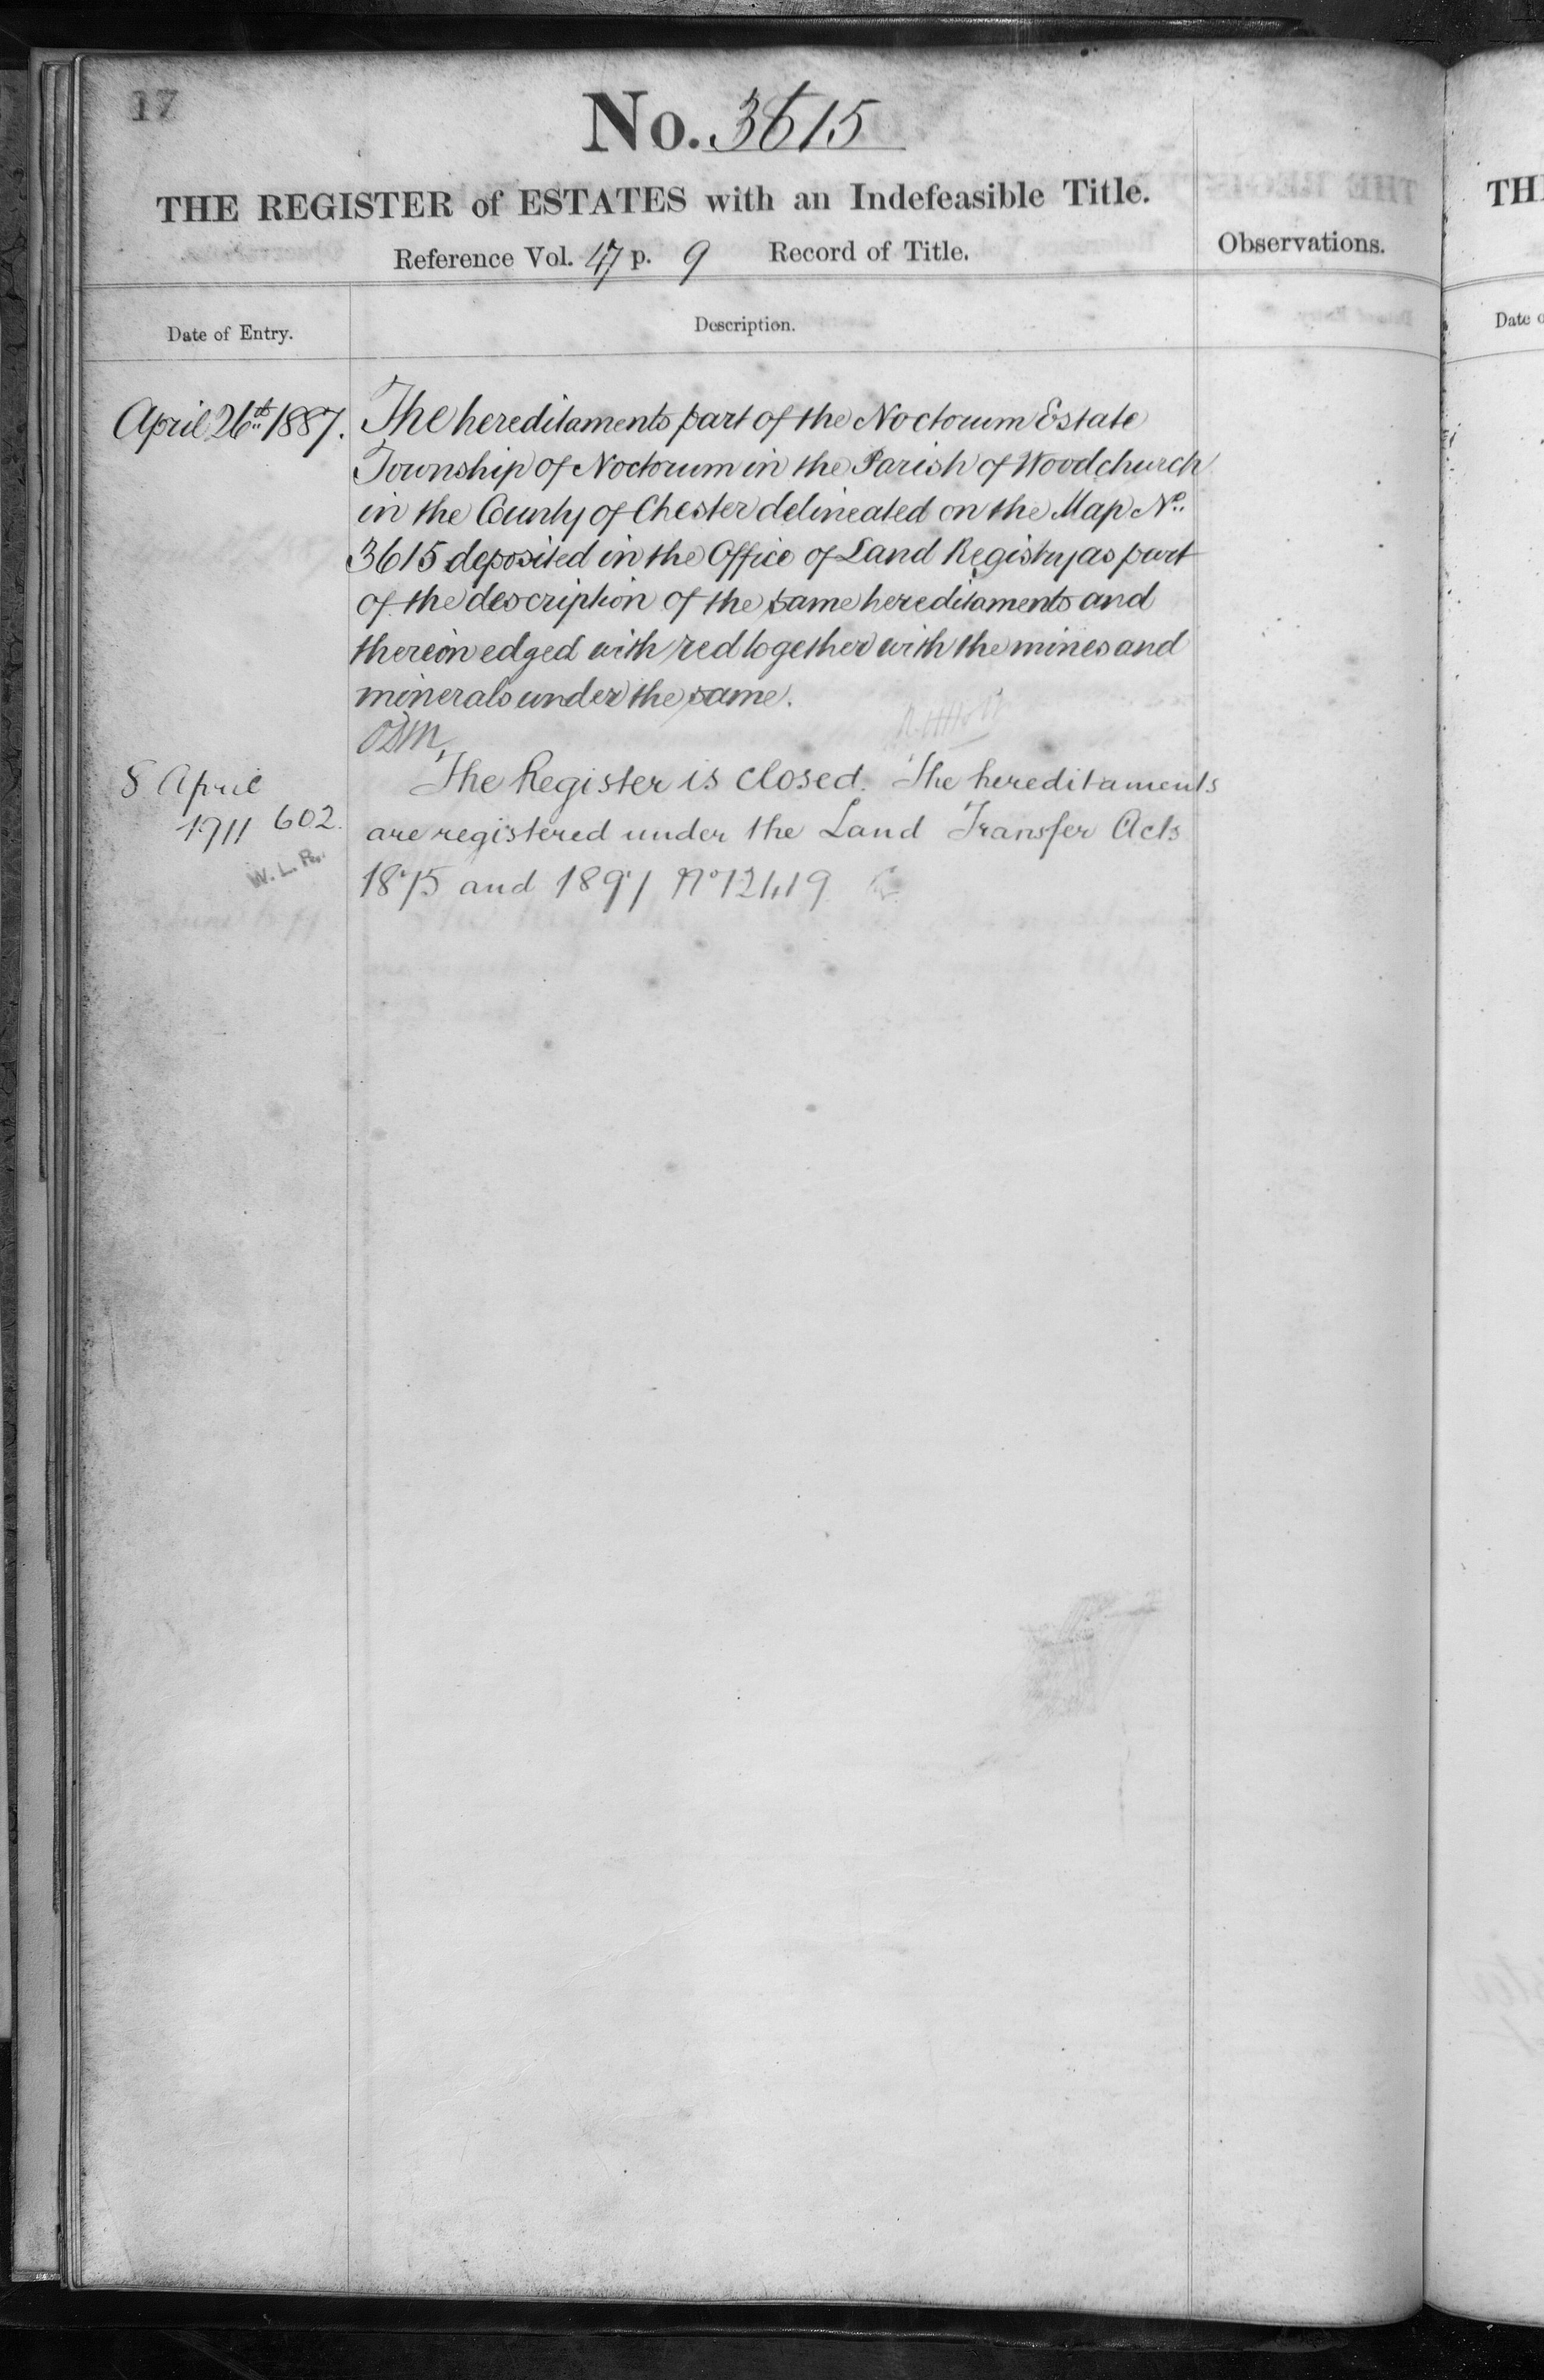 17
No. 3615
THE REGISTER of ESTATES with an Indefeasible Title.
Reference Vol. 47 p. 9 Record of Title.
Observations.
Date of Entry.
Description.
April 26th 1887.
The hereditaments part of the Noctorum Estate
Township of Noctorum in the Parish of Woodchurch
in the County of Chester delineated on the Map No.
3615 deposited in the Office of Land Registry as part
of the description of the same hereditaments and
thereon edged with red together with the mines and
minerals under the same.
8 April
1911 602.
W. L. R.
The Register is closed. The hereditaments
are registered under the Land Transfer Acts
1875 and 1897 No 12419
TH
Date o